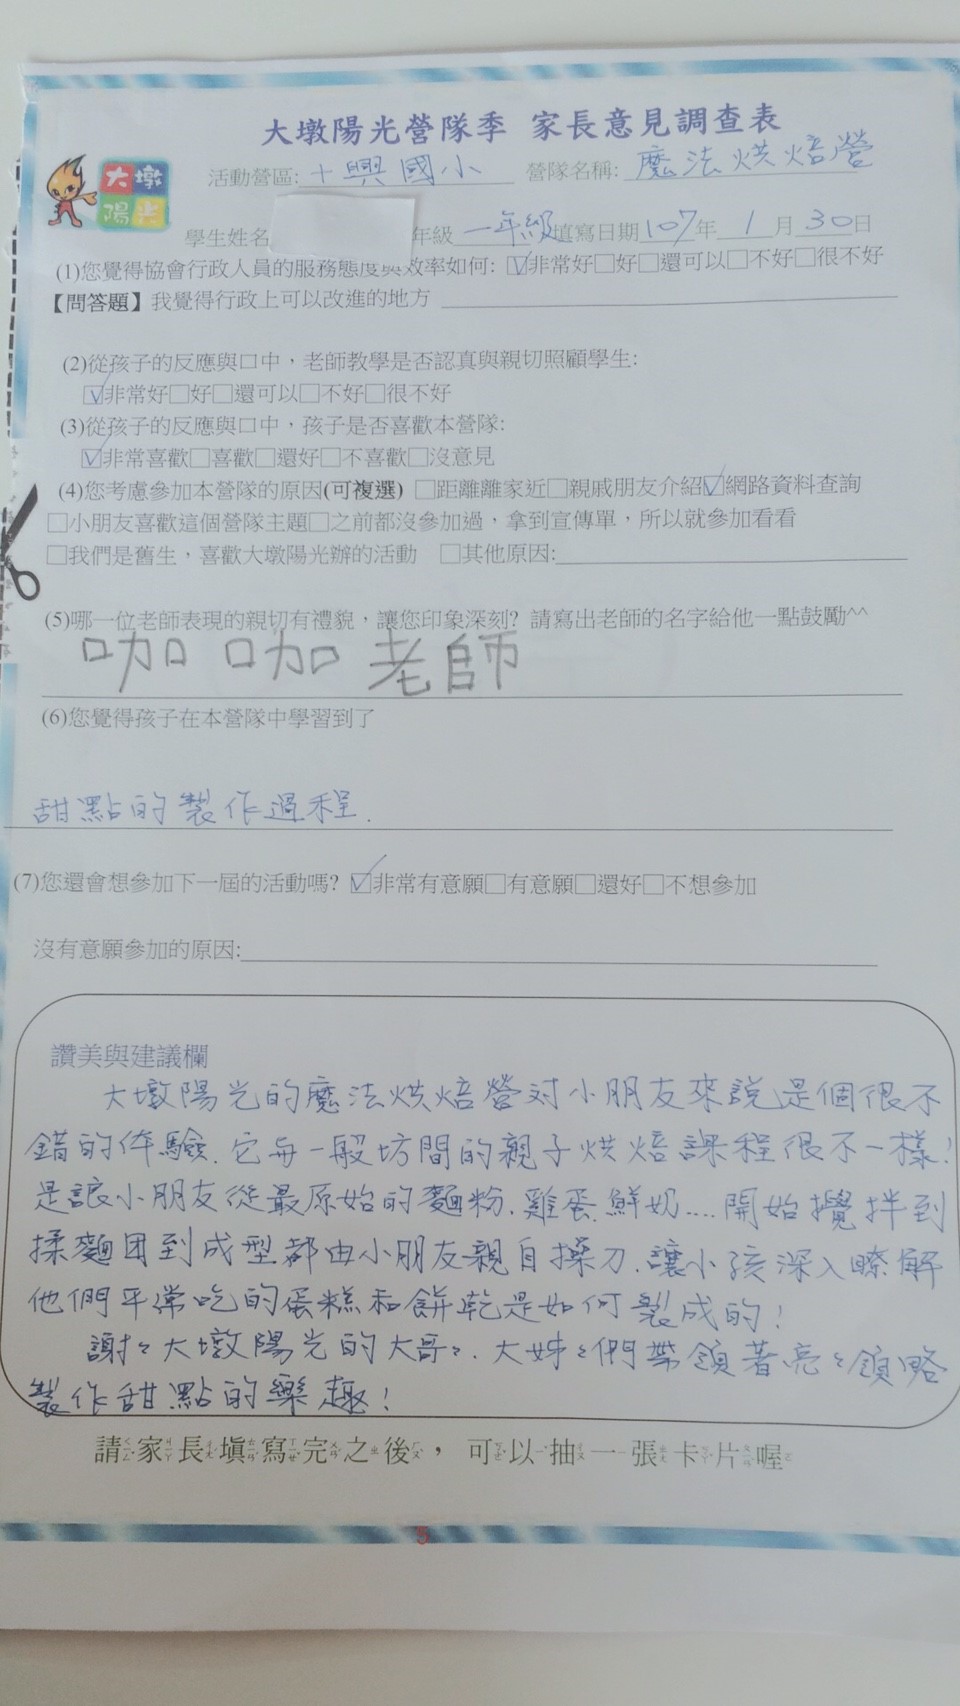 大墩陽光營隊季 家長意見調查表
大墩
陽光
活動營區: 十興國小 營隊名稱: 魔法烘焙營
學生姓名 年級 一年級 填寫日期 107 年 1 月 30 日
(1)您覺得協會行政人員的服務態度與效率如何: ☑非常好□好□還可以□不好□很不好
【問答題】我覺得行政上可以改進的地方
(2)從孩子的反應與口中，老師教學是否認真與親切照顧學生:
☑非常好□好□還可以□不好□很不好
(3)從孩子的反應與口中，孩子是否喜歡本營隊:
☑非常喜歡□喜歡□還好□不喜歡□沒意見
(4)您考慮參加本營隊的原因(可複選) □距離離家近□親戚朋友介紹☑網路資料查詢
□小朋友喜歡這個營隊主題□之前都沒參加過，拿到宣傳單，所以就參加看看
□我們是舊生，喜歡大墩陽光辦的活動 □其他原因:
(5)哪一位老師表現的親切有禮貌，讓您印象深刻? 請寫出老師的名字給他一點鼓勵^^
咖咖老師
(6)您覺得孩子在本營隊中學習到了
甜點的製作過程.
(7)您還會想參加下一屆的活動嗎? ☑非常有意願□有意願□還好□不想參加
沒有意願參加的原因:
讚美與建議欄
大墩陽光的魔法烘焙營對小朋友來說是個很不
錯的体驗. 它与一般坊間的親子烘焙課程很不一樣!
是讓小朋友從最原始的麵粉. 雞蛋. 鮮奶.... 開始攪拌到
揉麵団到成型都由小朋友親自操刀. 讓小孩深入瞭解
他們平常吃的蛋糕和餅乾是如何製成的!
謝々大墩陽光的大哥々. 大姊々們帶領著亮々領略
製作甜點的樂趣!
請家長填寫完之後，可以抽一張卡片喔
5